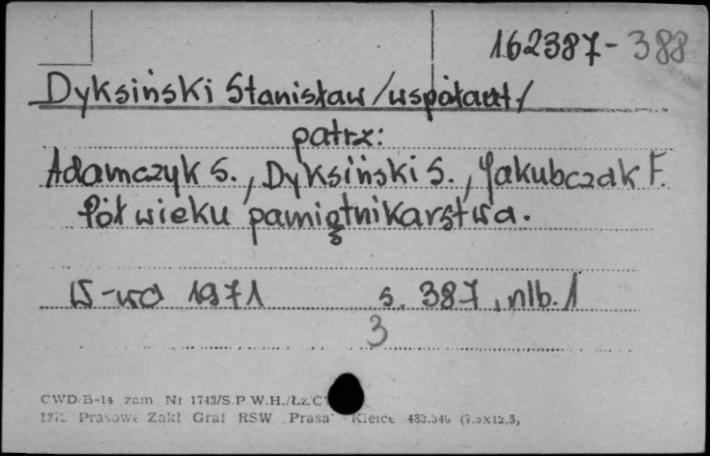 162387-388
Dyksiński Stanisław /współaut/
patrz:
Adamczyk S., Dyksiński S., Jakubczak F.
Pół wieku pamiętnikarstwa.
W-wa 1971 s. 387, nlb. 1
3
CWD/B-14 zam Nr 1743/S.P.W.H./Łż.C
Prasowe Zakł Graf RSW Prasa Kielce